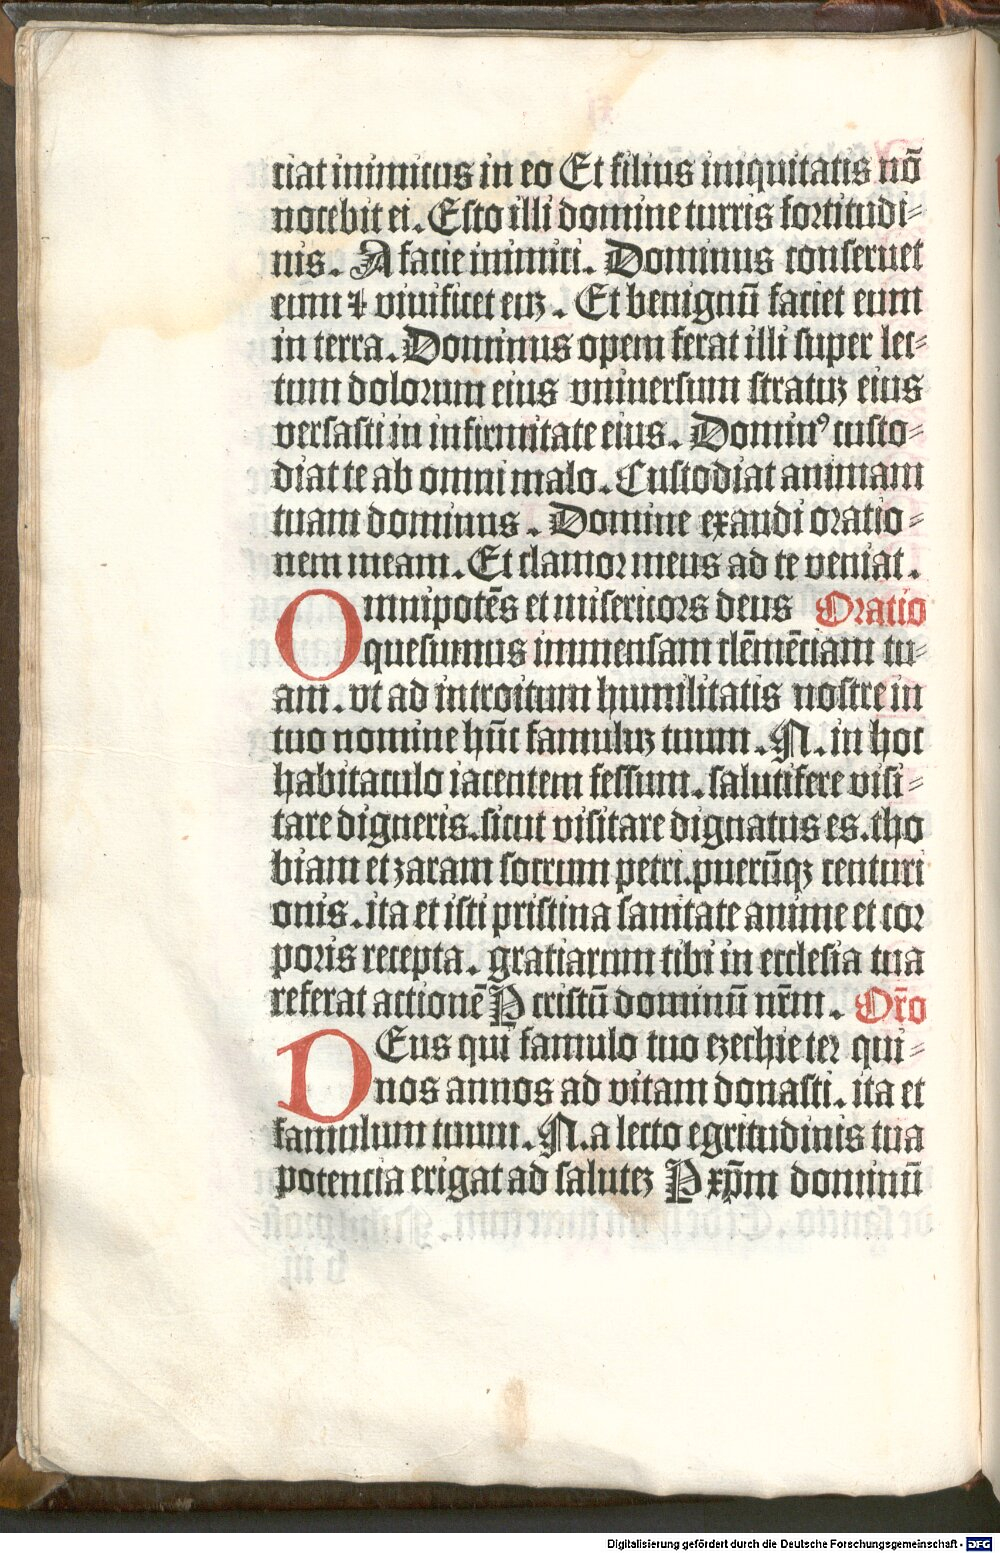 ciat inimicus in eo Et filius iniquitatis nō
nocebit ei. Esto illi domine turris fortitudi⸗
nis. A facie inimici. Dominus conseruet
eum ⁊ viuificet euȝ. Et benignū faciet eum
in terra. Dominus opem ferat illi super lec⸗
tum dolorum eius vniuersum stratuȝ eius
versasti in infirmitate eius. Dominꝰ custo⸗
diat te ab omni malo. Custodiat animam
tuam dominus. Domine exaudi oratio⸗
nem meam. Et clamor meus ad te veniat.
Omnipotēs et misericors deus Oratio
quesumus immensam clēmēciam tu⸗
am. vt ad introitum humilitatis nostre in
tuo nomine hūc famuluȝ tuum. N. in hoc
habitaculo iacentem fessum. salutifere visi⸗
tare digneris. sicut visitare dignatus es. tho
biam et zaram socrum petri. puerūqȝ centuri
onis. ita et isti pristina sanitate anime et cor
poris recepta. gratiarum tibi in ecclesia tua
referat actionē P cristū dominū nr̄m. Or̄o
DEus qui famulo tuo ezechie ter qui⸗
nos annos ad vitam donasti. ita et
famulum tuum. N. a lecto egritudinis tua
potencia erigat ad saluteȝ P xp̄m dominū
Digitalisierung gefördert durch die Deutsche Forschungsgemeinschaft - DFG